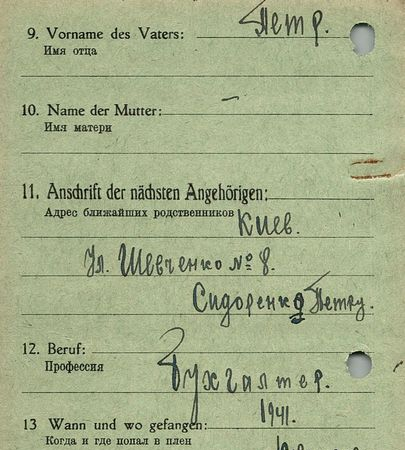 9. Vorname des Vaters: Петр.
Имя отца
10. Name der Mutter: –
Имя матери
11. Anschrift der nächsten Angehörigen:
Адрес ближайших родственников Киев.
Ул. Шевченко № 8.
Сидоренко Петру.
12. Beruf:
Профессия Бухгалтер.
13 Wann und wo gefangen: 1941.
Когда и где попал в плен